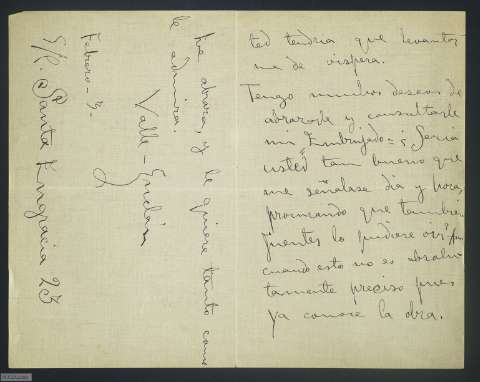 ted tendría que levantar
me de víspera.
Tengo muchos deseos de
abrazarle y consultarle
mi Embrujado = ¿Sería
usted tam bueno que
me señalase día y hora,
procurando que tambié-
fuentes lo pudiese oir?
cuando esto no es absolu-
tamente preciso pues
ya conoce la obra.
Le abraza, y le quiere tanto como
le admira.
Valle-Inclán
Febrero-3-
S/C. Santa Engracia 23